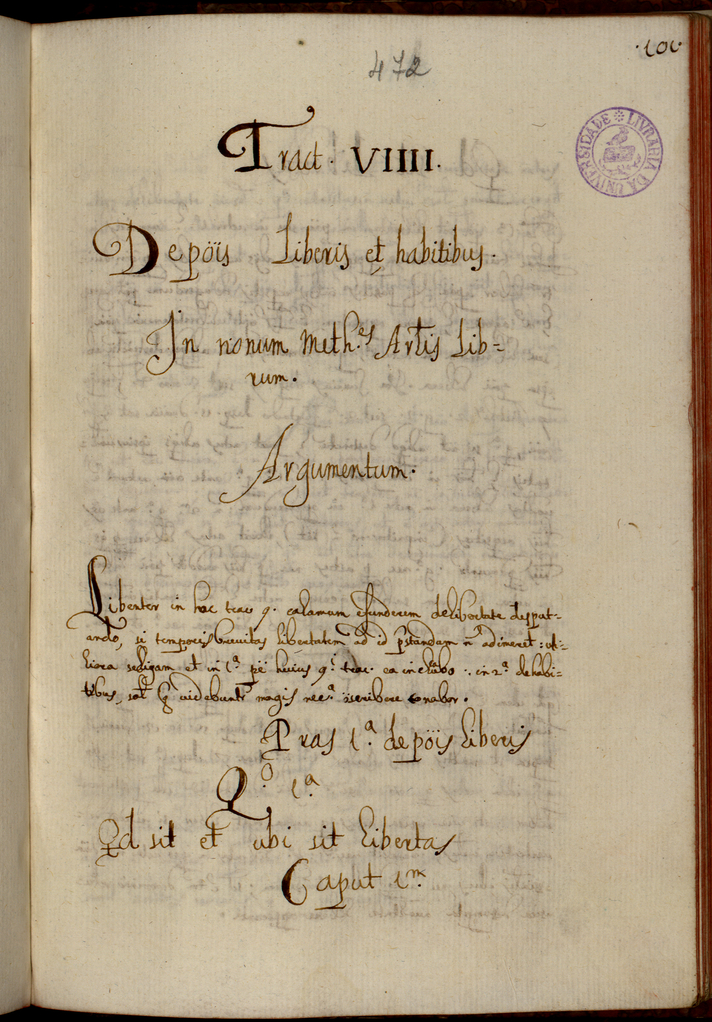 ·101·
472
LIVRARIA DA UNIVERSIDADE
Tract. VIIII.
De põis Liberis et habitibus.
In nonum Meth.es Artis Lib=
rum.
Argumentum.
Libenter in hac trac 9. calamum efunderem de libertate disput-
ando, si temporis brevitas libertatem ad id prstandam n adimeret: ut-
liora seligam et in 1.ª pe huius 9.i trac. ea includo ·. in 2.ª de habi-
tibus, magis nec.ª scribere conabor.
Pras 1.ª de põis liberis
Q.o 1.ª
Qd sit et ubi sit libertas
Caput 1.m